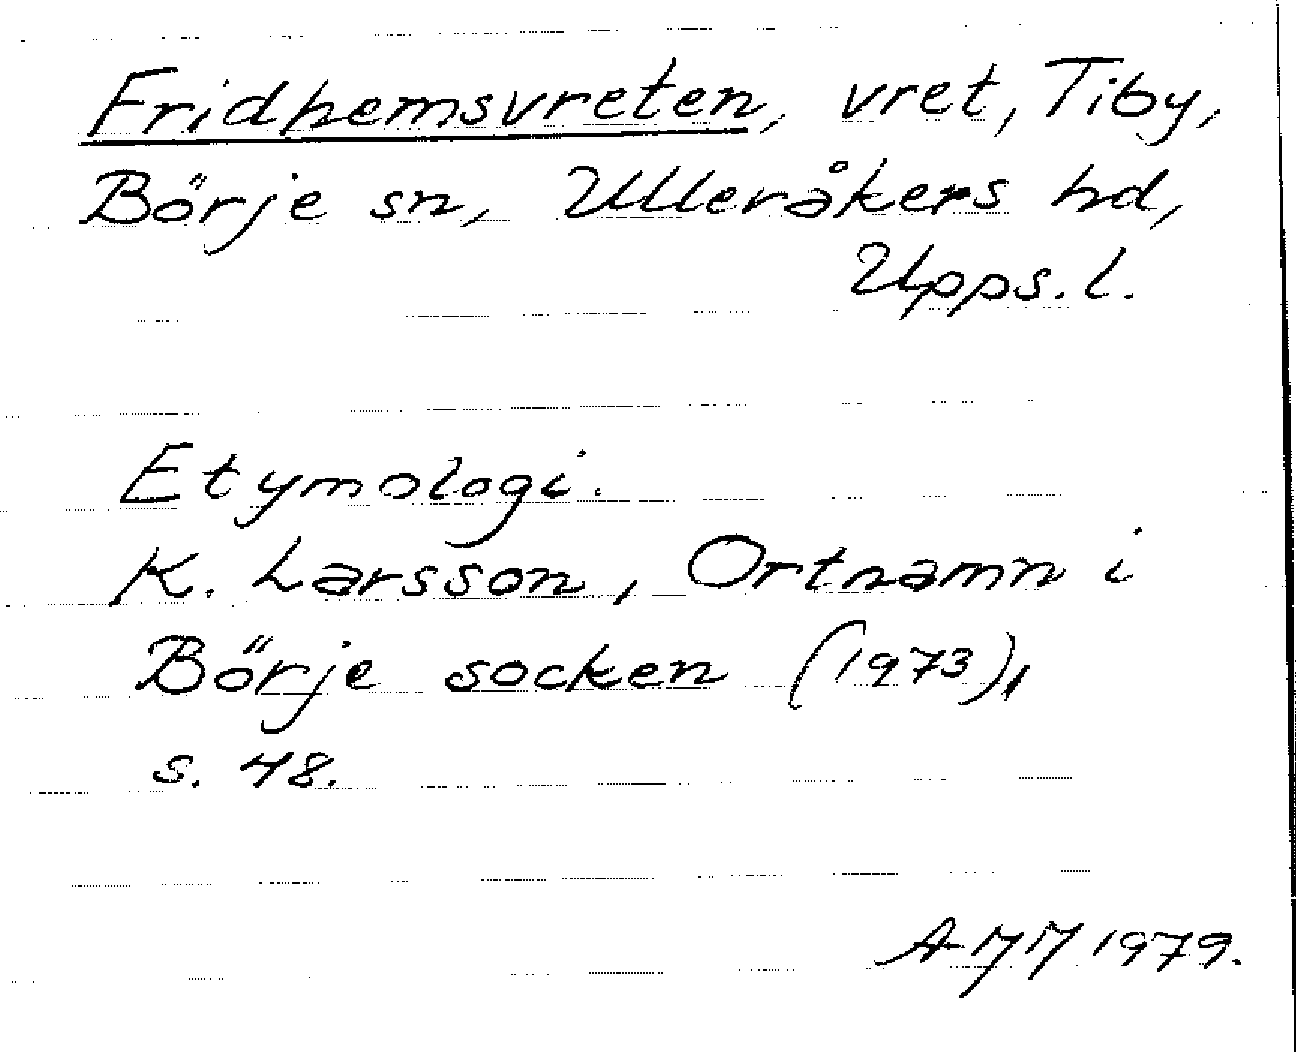 Fridhemsvreten, vret, Tiby,
Börje sn, Ulleråkers hd,
Upps. l.
Etymologi.
K. Larsson, Ortnamn i
Börje socken (1973),
s. 48.
1979.